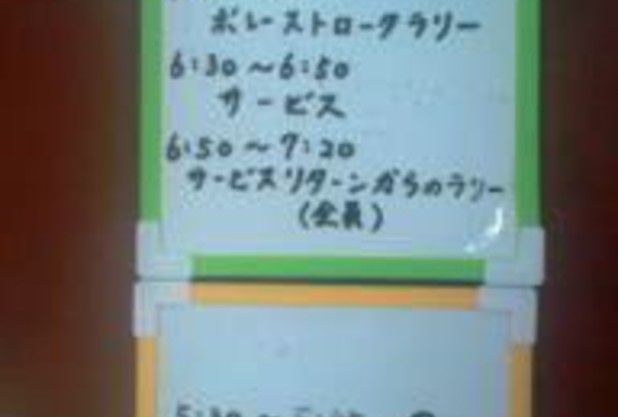 ボレーストロークラリー
6:30～6:50
サービス
6:50～7:20
サービスリターンからのラリー
(全員)
5:30～